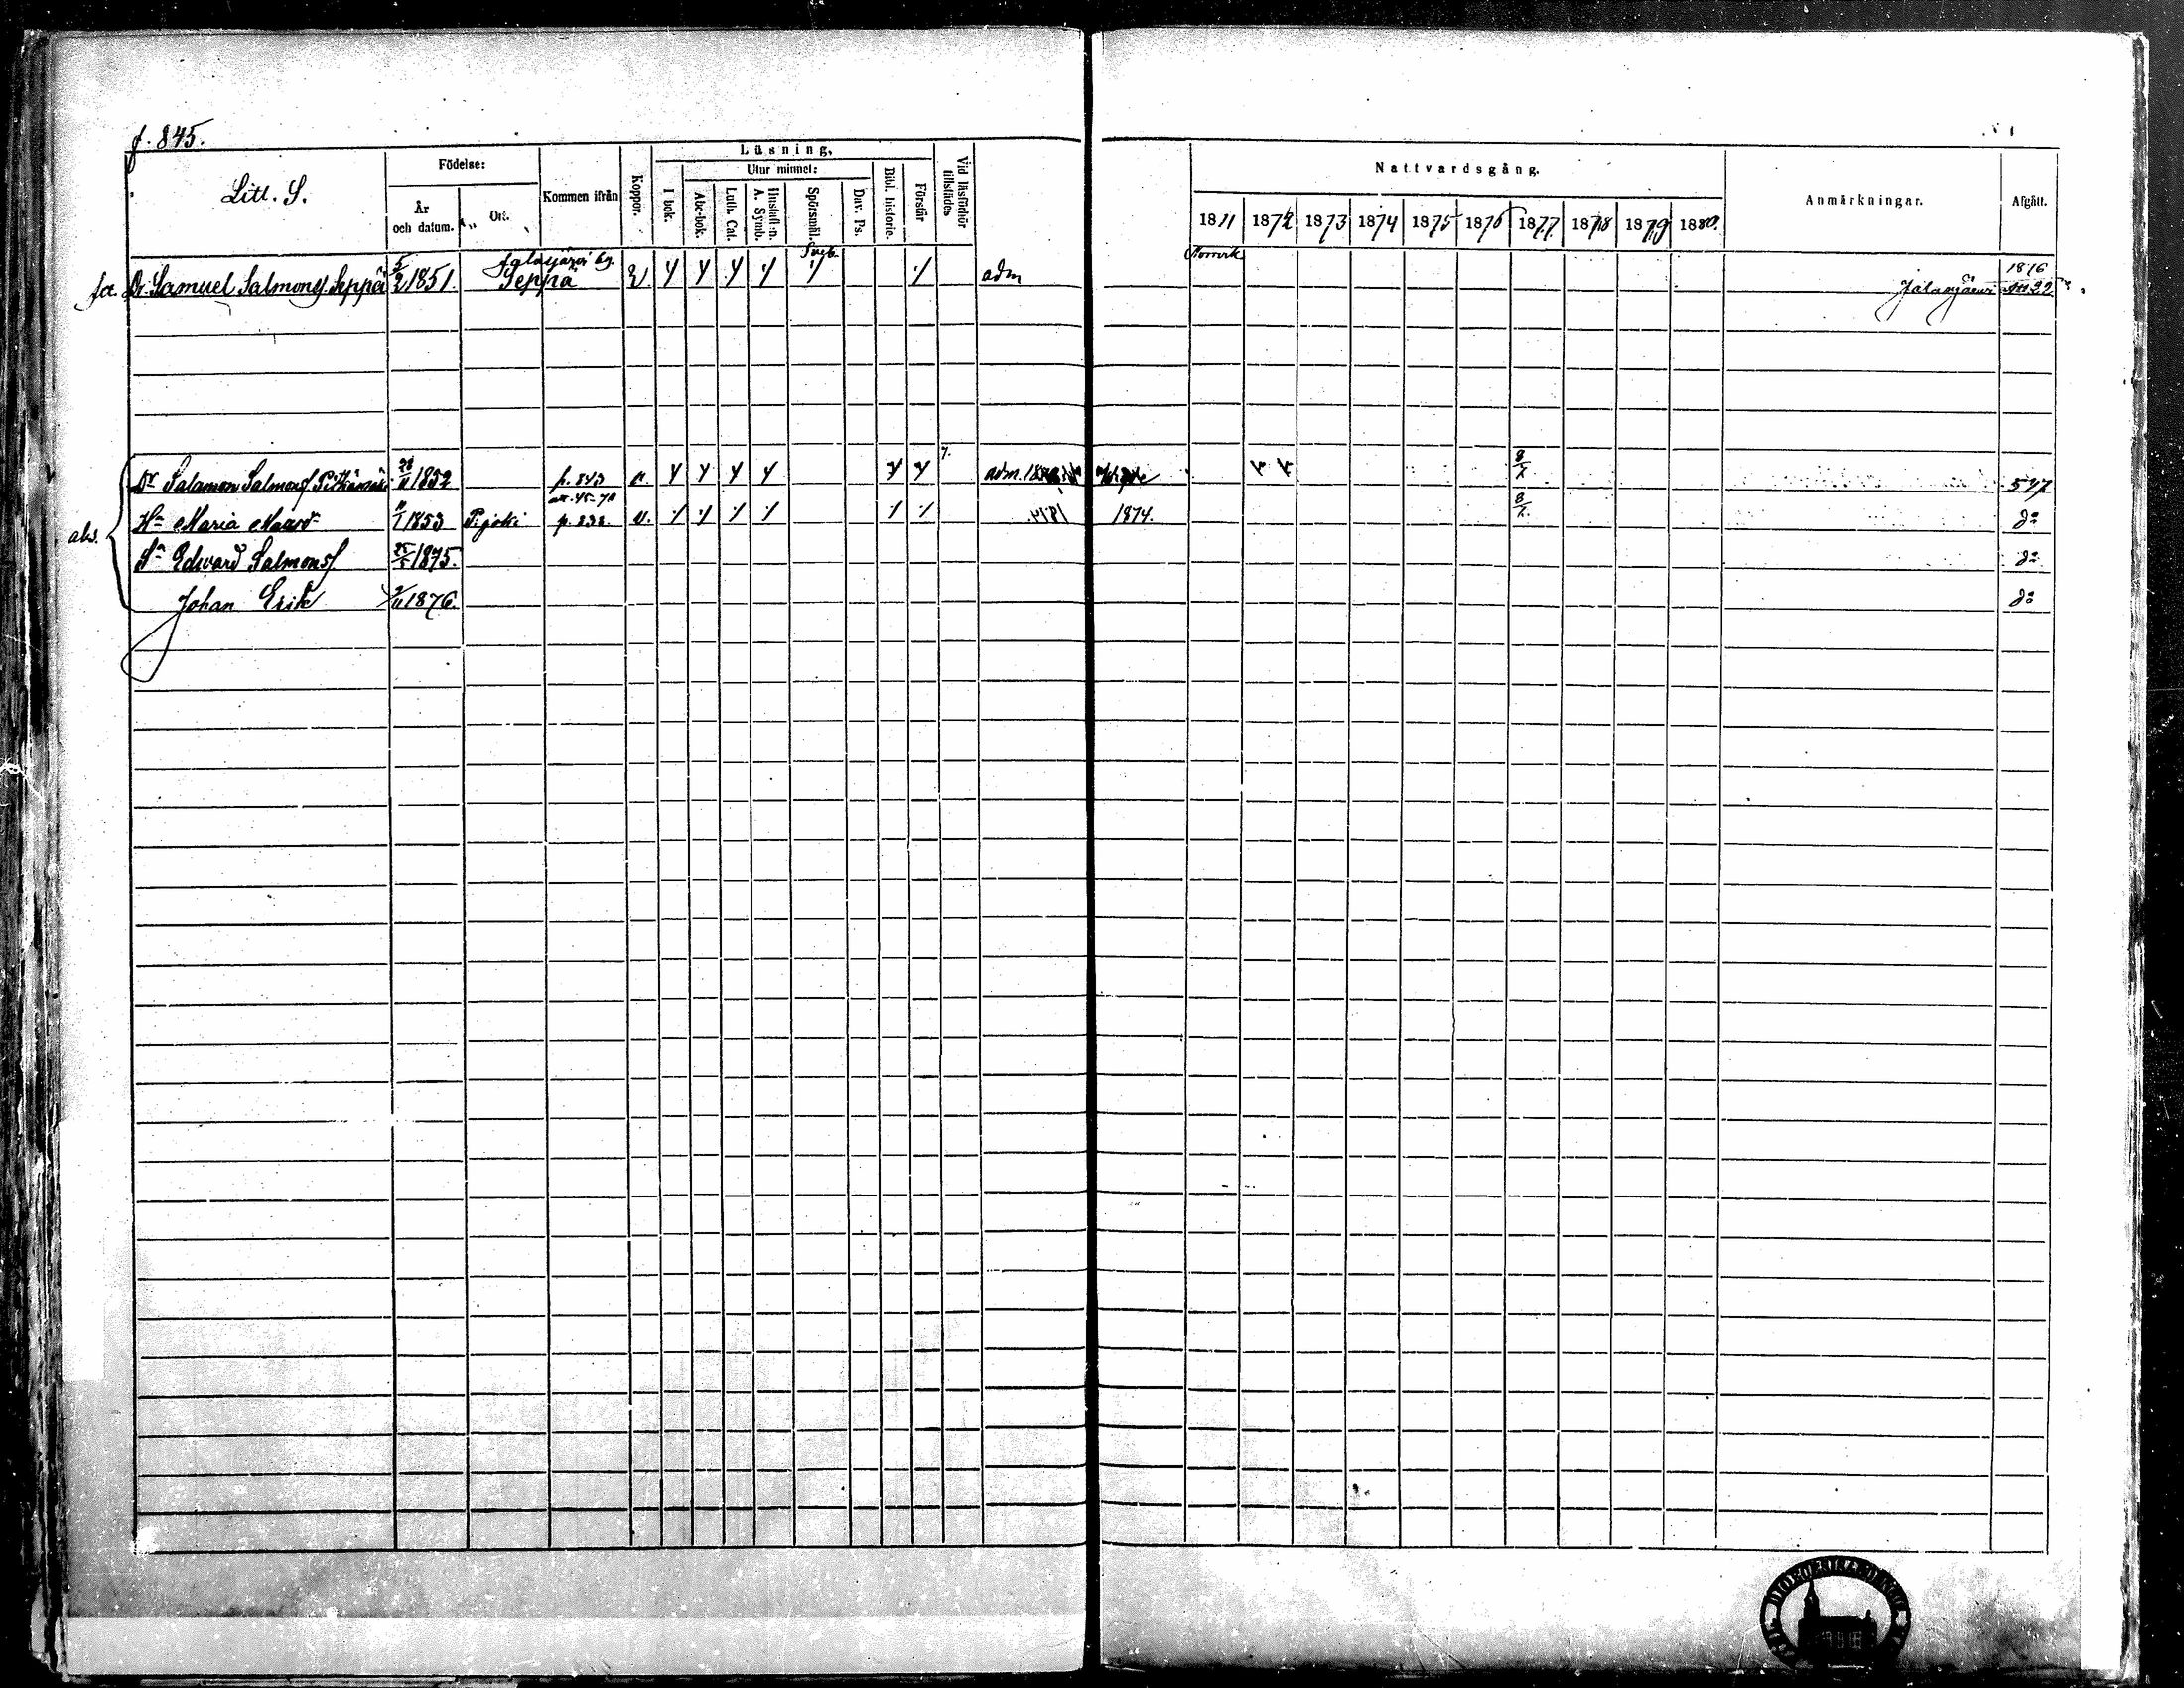 f. 845.
Litt. S.
Födelse:
År och datum.
Ort.
Kommen ifrån
Koppor.
Läsning,
I bok.
Utur minnet:
Abc-bok.
Luth. Cat.
Hustafl:n.
A. Symb.
Spörsmål.
Dav. Ps.
Bibl. historie.
Förstår
Vid läsförhör tillstädes
Nattvardsgång.
1871 1872 1873 1874 1875 1876 1877 1878 1879 1880.
Anmärkningar.
Afgått.
Dr. Samuel Salmonsf Seppä 5/2 1851. Jalasjärvi by. Seppä v adm Jalasjärvi 1876 22
Dr Salamon Salmonsf 28/11 1852 p. 843 v. adm. 8/7. 547
Hu Maria 11/1 1853 p. 232. v. 1874. 8/7. do
abs.
Sn Edvard Salmonsf 25/5 1875. do
Johan Erik 1876. do